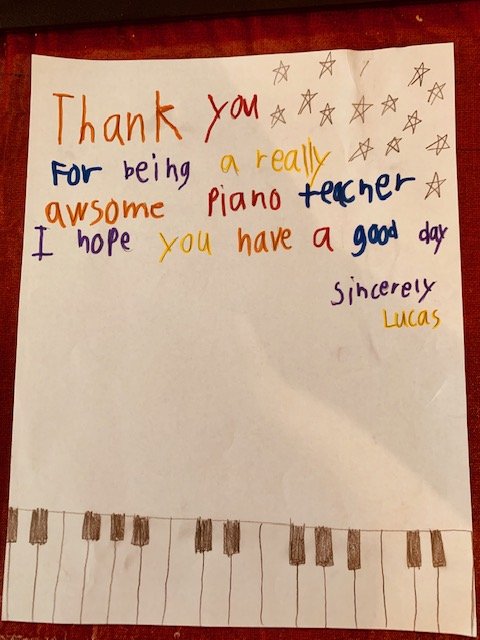 Thank you
For being a really
awsome Piano teacher
I hope you have a good day
Sincerely
Lucas